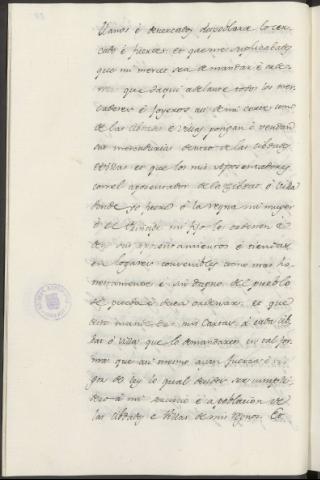 llanos é derercatos despoblara lo cer-
cado é fuertes. et que me suplicabades
que mi merced sea de mandar é orde-
nar que daqui adelante todos los mer-
caderes é joyeros asi de mi corte como
de las cibdades é villas pongan é vendan
sus mercadurias dentro de las cibdades
é villas et que los mis aposentadores
con el aposentador de la cibdat ó villa
donde yo fuere ó la reyna mi muger
ó el Principe mi fijo les caten é
den sus apartamientos é tiendas
en logares convenibles como mas ho-
nestamente é sin daño del pueblo
se pueda é deva ordenar. et que
desto mande dar mis cartas á cada cib-
dat ó villa que lo demandaren en tal for-
ma que asi mesmo ayan fuerza é vi-
gor de ley lo qual desides ser cumpli-
dero á mi servicio é á poblacion de
las cibdades é villas de mis regnos. Et